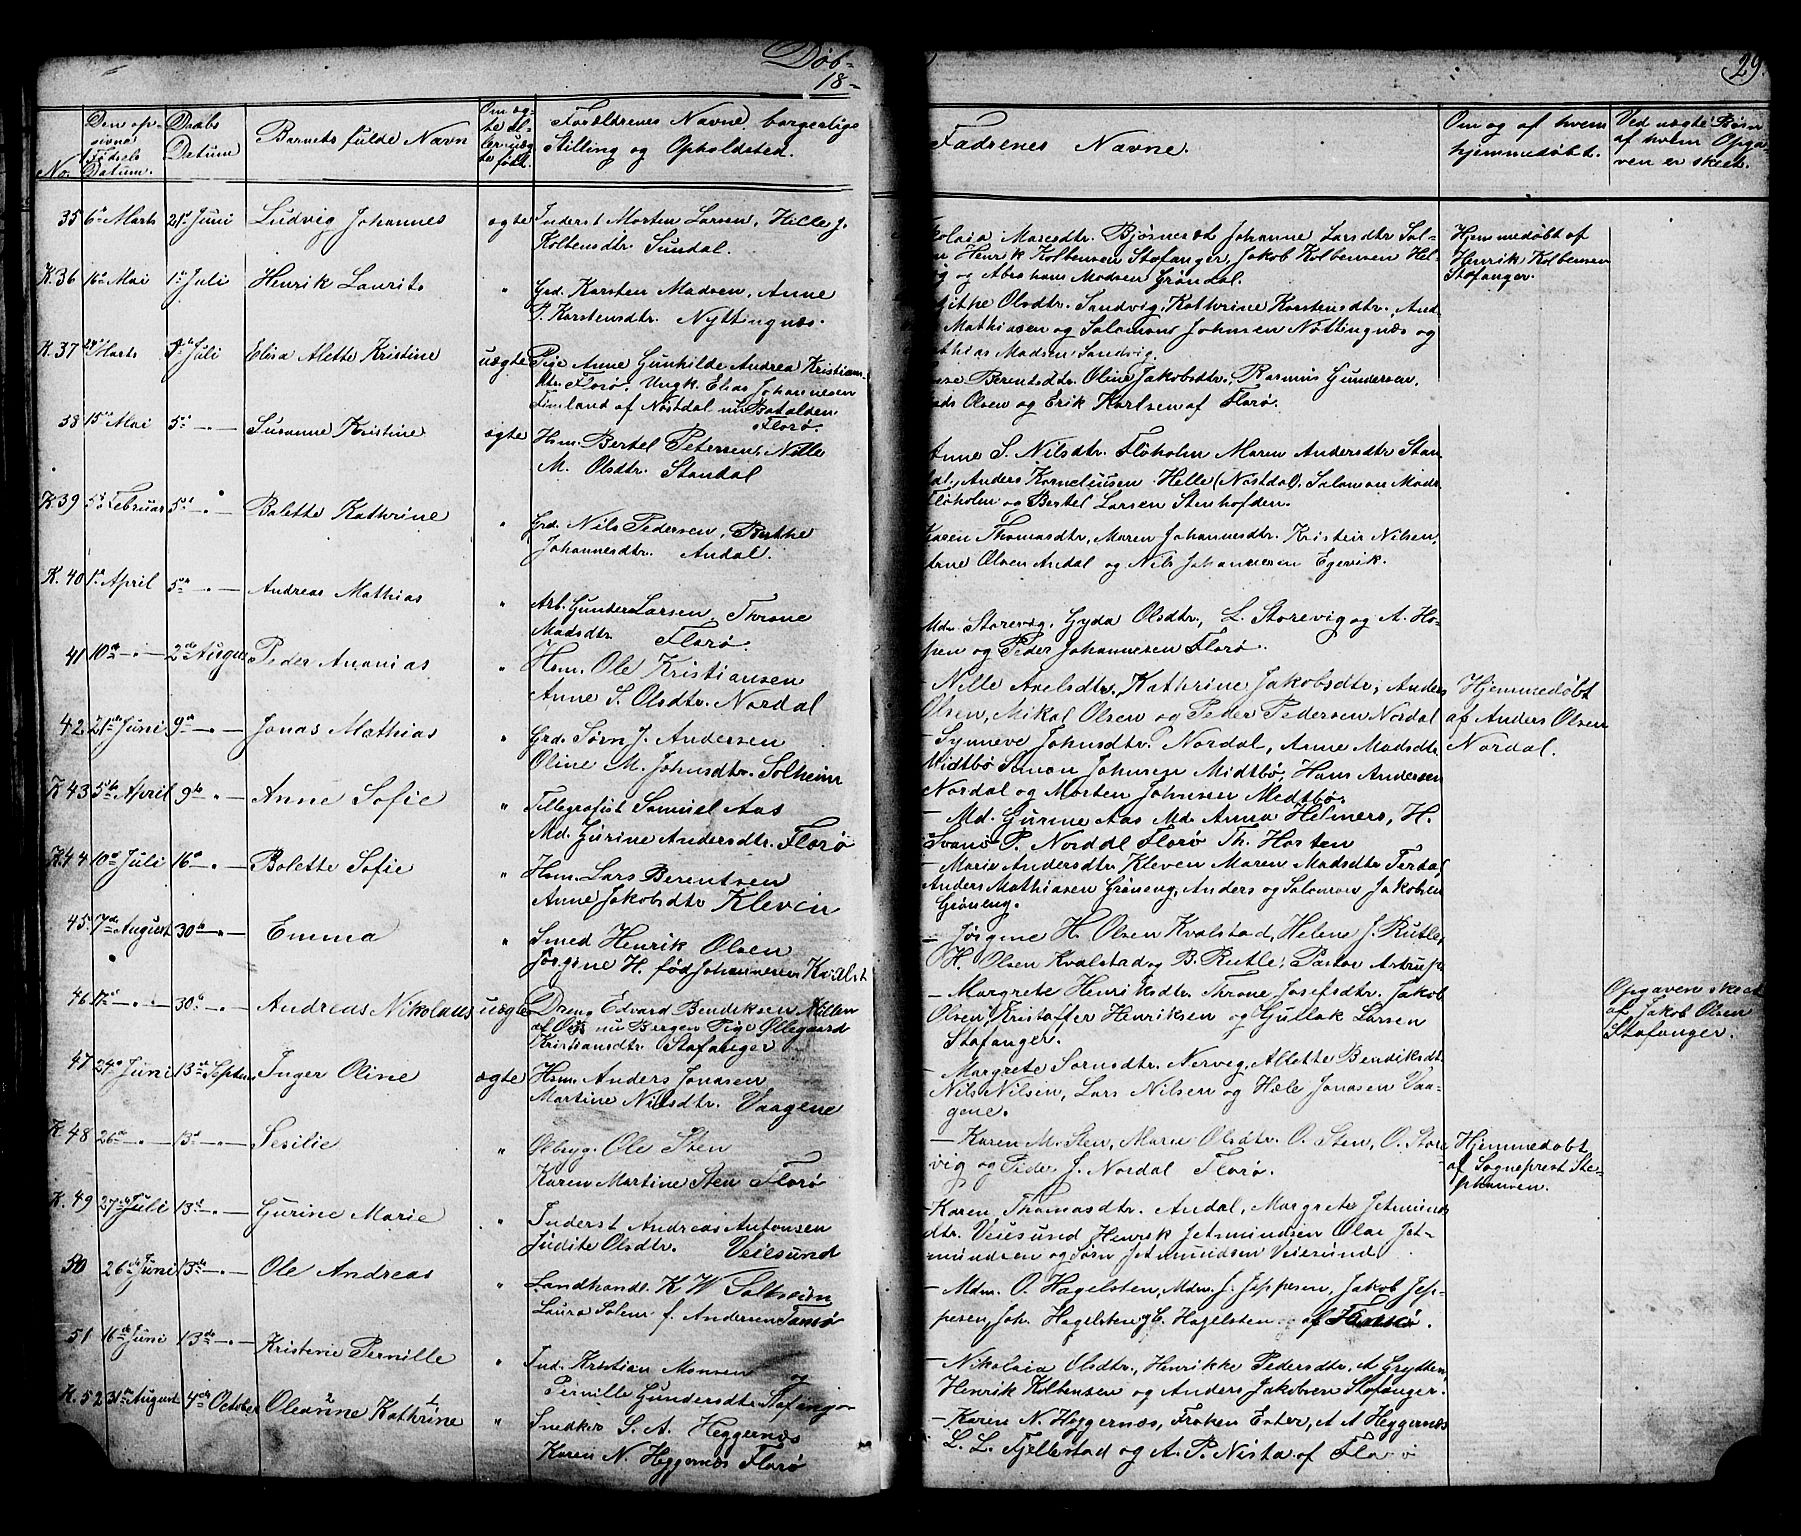 Døb-
18-
29.
No.
Den op-
givne
Fødsels
Datum.
Daabs
Datum
Barnets fulde Navn
Om æg-
te el-
ler uæg
te født.
Forældrenes Navne, borgerlige
Stilling og Opholdsted.
Fadrenes Navne.
Om og af hvem
hjemmedøbt.
Ved uægte Børn
af hvem Opga-
ven er skeet.
35 6te Marts 21de Juni Ludvig Johannes ægte Inderst Morten Larsen, Hille J.
Kolbensdtr. Sundal.
Maresdtr. Bjørneset Johanne Larsdtr Sol-
Henrik Kolbensen Stafanger, Jakob Kolbensen Hel-
vig og Abraham Madsen Grøndal.
Hjemmedøbt af
Henrik Kolbensen
Stafanger.
K. 36 16de Mai 1ste Juli Henrik Laurits " Grd. Karsten Madsen, Anne
P. Karstensdtr. Nyttingnæs.
Olsdtr. Sandvig, Kathrine Karstensdtr, And
Mathiasen og Salomons Johnsen Nøttingnæs og
Mathias Madsen Sandvig.
K. 37 Marts Juli Elisa Alette Kristine uægte Pige Anne Gunhilde Andrea Kristians-
dtr. Florø, Ungk. Elias Johannesen
Fimeland af Nøstdal nu Batalden
Florø.
Berentsdtr. Oline Jakobsdtr., Rasmus Gundersen,
Mads Olsen og Erik Karlsen af Florø.
38 15de Mai 5te - " - Susanne Kristine ægte Hsm. Bertel Petersen, Nille
M. Olsdtr. Standal
Anne S. Nilsdtr. Floholm Maren Andersdtr Stan
dal, Anders Korneliusen Helle (Nøstdal), Salomon Mads.
Floholm og Bertel Larsen Stenhofden.
K. 39 5te Februar 5te - " - Bolette Kathrine " Grd. Nils Pedersen, Berthe
Johannesdtr. Andal.
Karen Thomasdtr, Maren Johannesdtr. Kristen Nilsen,
Arne Olsen Andal og Nils Johannesen Egevik.
K. 40 1ste April 5te - " - Andreas Mathias " Arb. Gunder Larsen, Throne
Madsdtr. Florø.
Mdm Storevig, Gyda Olsdtr., L. Storevig og A. Ho-
pen og Peder Johannesen Florø.
41 10de - " - 2den August Peder Ananias " Hsm. Ole Kristiansen
Anne S. Olsdtr. Nordal
Nille Axelsdtr, Kathrine Jakobsdtr, Anders
Olsen, Mikal Olsen og Peder Pedersen Nordal
Hjemmedøbt
af Anders Olsen
Nordal.
42 21de Juni 9de - " - Jonas Mathias " Grd. Sørn J. Andersen
Oline M. Johnsdtr. Solheim
- Synneve Johnsdtr. Nordal, Anne Madsdtr
Midtbø Simon Johnsen Midtbø, Hans Andersen
Nordal og Morten Johnsen Midtbø.
K 43 5te April 9de - " - Anne Sofie " Tillegrafist Samuel Aas
Md. Gurine Andersdtr. Florø
- Md. Gurine Aas Md. Anna Helmers, H.
Svanø P. Norddl Florø Th. Hosten
K. 44 10de Juli 16de - " - Bolette Sofie " Hsm. Lars Berentsen
Anne Jakobsdtr Kleven
- Marie Andersdtr Kleven Maren Madsdtr Terdal
Anders Mathiasen Grøneng, Anders og Salomon Jakobsen
Grøneng.
45. 7de August 30te - " - Emma " Smed Henrik Olsen
Jørgine H. fød Johannesen Kvalst
- Jørgene H. Olsen Kvalstad, Helene J. Rutle,
H. Olsen Kvalstad og B. Rutle, Pastor Astrup
46 17de - " - 30te - " - Andreas Nikolaus uægte Dreng Edvard Bendiksen Hillen
nu Bergen Pige Ollegaard
Kristiansdtr. Stafanger
- Margrete Henriksdtr Throne Josefsdtr, Jakob
Olsen, Kristoffer Henriksen og Gjullak Larsen
Stafanger.
Opgaven skeet
af Jakob Olsen
Stafanger.
47 24de Juni 13de Septem Inger Oline ægte Hsm. Anders Jonasen
Martine Nilsdtr. Vaagene
- Margrete Sørnsdtr. Nervig, Allette Bendiksdtr
Nils Nilsen, Lars Nilsen og Hæle Jonasen Vaa-
gene.
K. 48 26de - " - 13de - " - Sesilie " Ølbryg. Ole Sten
Karen Martine Sten Florø
- Karen M. Sten, Marie Olsdtr. O. Sten, O. Store
vig og Peder J. Nordal Florø.
Hjemmedøbt
af Sogneprest Ste-
phansen.
K. 49 27de Juli 13de - " - Gurine Marie " Inderst Andreas Antonsen
Judite Olsdtr. Veiesund
- Karen Thomasdtr. Andal, Margrete Jetmund
dtr. Veiesund Henrik Jetmundsen Olai Jet-
mundsen og Sørn Jetmundsen Veiesund
50 26de Juni 13de - " - Ole Andreas " Landhandl. K W Solheim
Laura Solem f. Andersen Tansø
- Mdm. O. Hagelsten, Mdm. J. Jeppesen, Jakob Jep-
pesen, Joh. Hagelsten og C. Hagelsten af Florø.
51 16de Juni 13de - " - Kristine Pernille " Ind. Kristian Monsen og
Pernille Gundersdtr Stafanger
- Nikolaia Olsdtr., Henrikke Pedersdtr, A Grytten,
Henrik Kolbensen og Anders Jakobsen Stafanger.
K. 52 31te August 4de October Oleanne Kathrine " Snedker S. A. Heggernæs
Karen N. Heggernæs Florø
- Karen N. Heggernæs, Frøken Ester, A A Heggernæs
L. L. Fjellestad og A. P. Nista af Florø